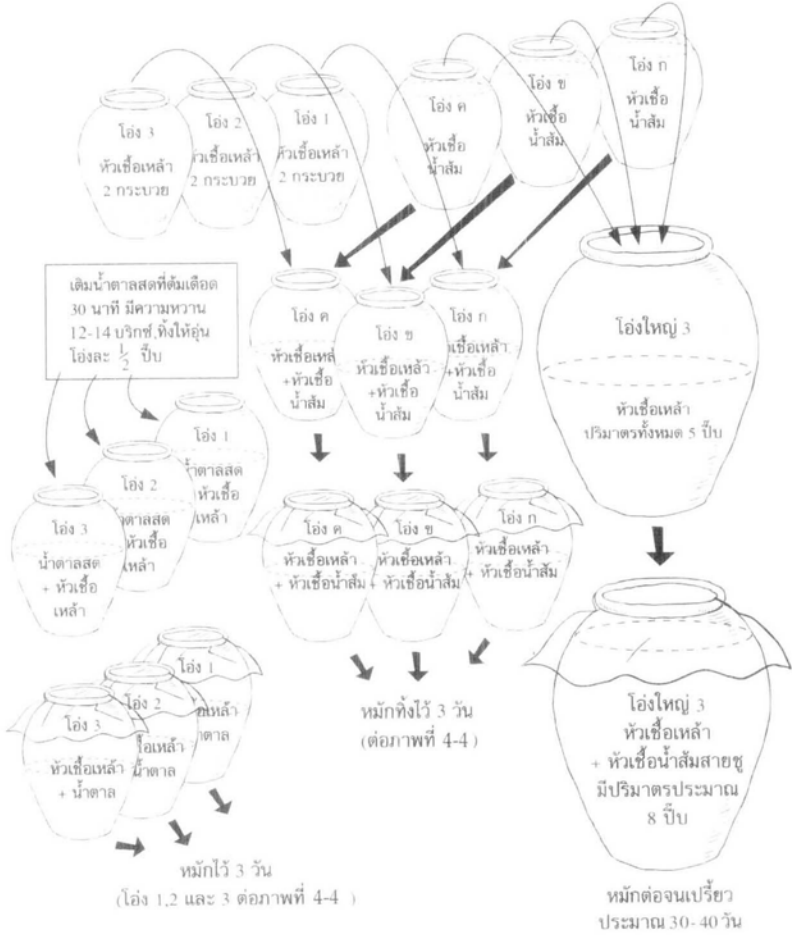 โอ่ง 3
หัวเชื้อเหล้า
2 กระบวย
โอ่ง 2
หัวเชื้อเหล้า
2 กระบวย
โอ่ง 1
หัวเชื้อเหล้า
2 กระบวย
โอ่ง ค
หัวเชื้อ
น้ำส้ม
โอ่ง ข
หัวเชื้อ
น้ำส้ม
โอ่ง ก
หัวเชื้อ
น้ำส้ม
เติมน้ำตาลสดที่ต้มเดือด
30 นาที มีความหวาน
12-14 บริกซ์ ทิ้งให้อุ่น
โอ่งละ ½ ปี๊บ
โอ่ง ค
หัวเชื้อเหล้
+หัวเชื้อ
น้ำส้ม
โอ่ง ข
หัวเชื้อเหล้า
+หัวเชื้อ
น้ำส้ม
โอ่ง ก
หัวเชื้อเหล้า
+หัวเชื้อ
น้ำส้ม
โอ่งใหญ่ 3
หัวเชื้อเหล้า
ปริมาตรทั้งหมด 5 ปี๊บ
โอ่ง 1
น้ำตาลสด
หัวเชื้อ
เหล้า
โอ่ง 2
น้ำตาลสด
หัวเชื้อ
เหล้า
โอ่ง 3
น้ำตาลสด
+ หัวเชื้อ
เหล้า
โอ่ง ค
หัวเชื้อเหล้า
+ หัวเชื้อน้ำส้ม
โอ่ง ข
หัวเชื้อเหล้า
+ หัวเชื้อน้ำส้ม
โอ่ง ก
หัวเชื้อเหล้า
+ หัวเชื้อน้ำส้ม
หมักทิ้งไว้ 3 วัน
(ต่อภาพที่ 4-4)
โอ่ง 1
เชื้อเหล้า
น้ำตาล
โอ่ง 2
เชื้อเหล้า
น้ำตาล
โอ่ง 3
หัวเชื้อเหล้า
+ น้ำตาล
หมักไว้ 3 วัน
(โอ่ง 1,2 และ 3 ต่อภาพที่ 4-4 )
โอ่งใหญ่ 3
หัวเชื้อเหล้า
+ หัวเชื้อน้ำส้มสายชู
มีปริมาตรประมาณ
8 ปี๊บ
หมักต่อจนเปรี้ยว
ประมาณ 30-40 วัน